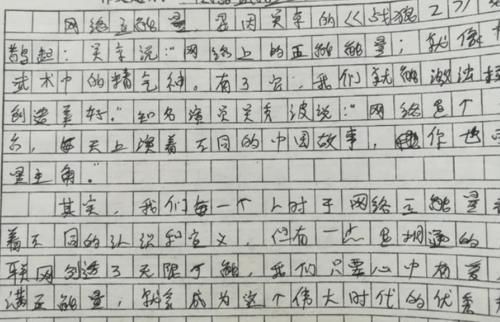 网络正能量，是因吴京的《战狼2》
鹊起：吴京说：“网络上的正能能量；就像
武术中的精气神。有了它，我们就能激浊扬
创造美好。”知名演员关秀波说：“网络是个
台，每天上演着不同的中国故事，你也
是主角。”
其实，我们每一个人对于网络正能量
着不同的认识和定义，但有一点是相通的
联网创造了无限可能，我们只要心中有
满正能量，就会成为这个伟大时代的优秀